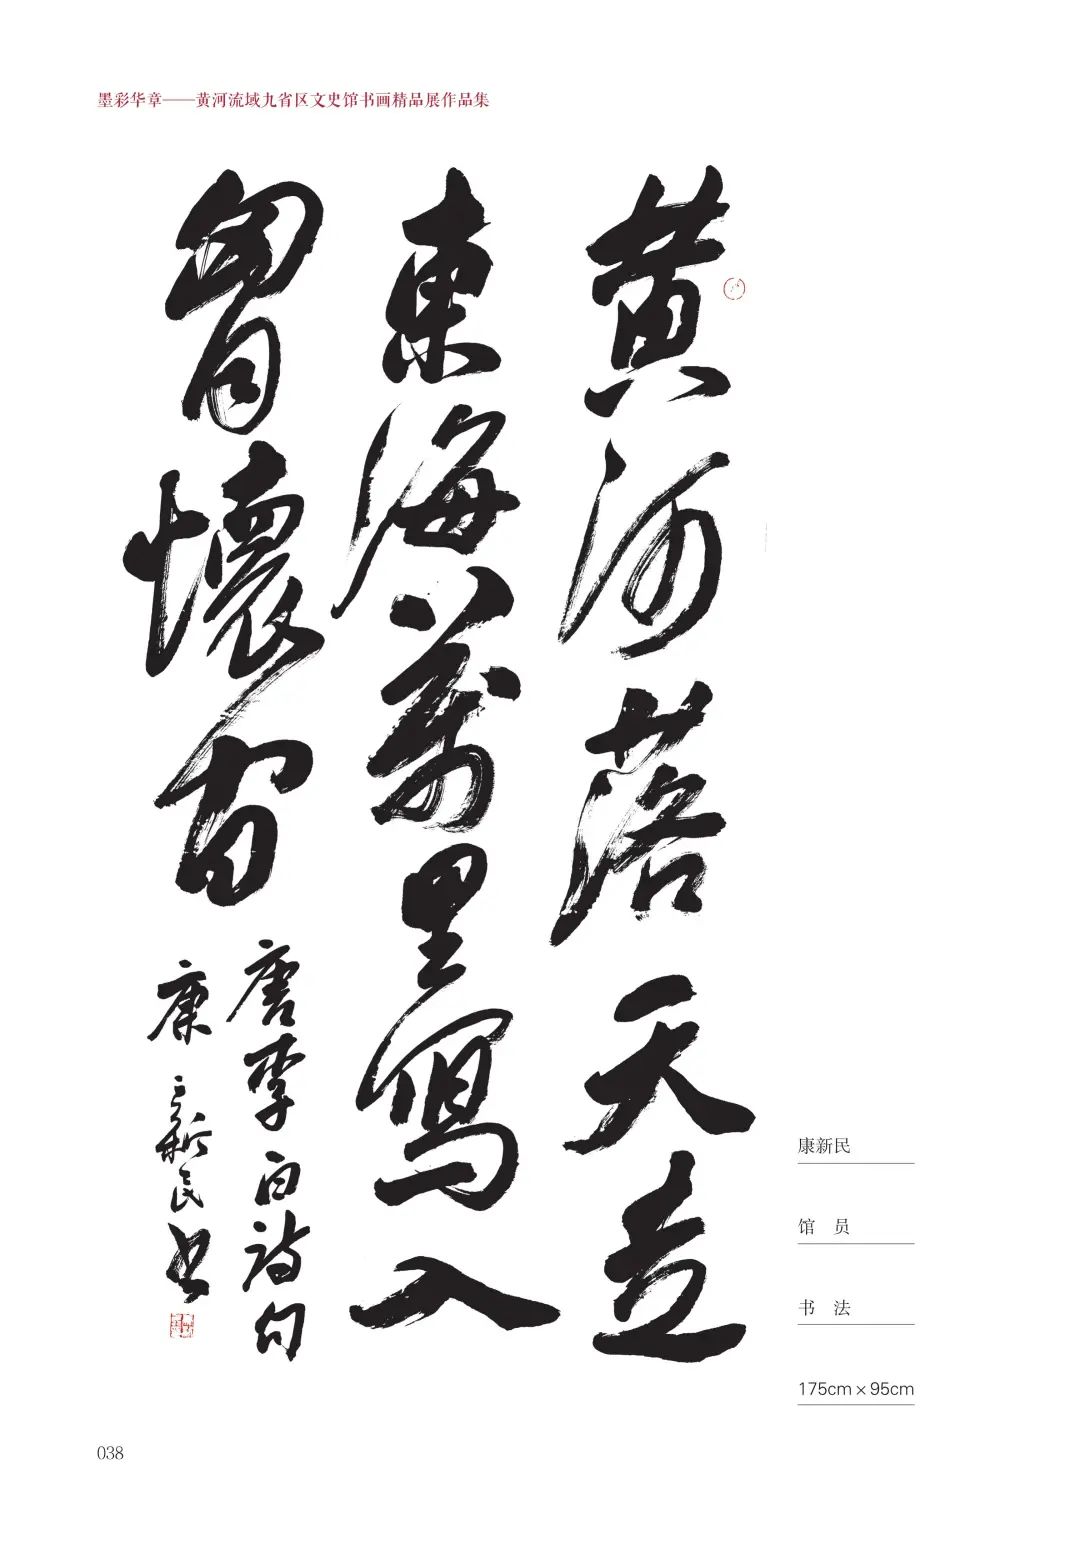 墨彩华章——黄河流域九省区文史馆书画精品展作品集
黄河落天走
東海萬里寫入
胷懷間
唐李白詩句
康新民书
康新民
馆 员
书 法
175cm×95cm
038